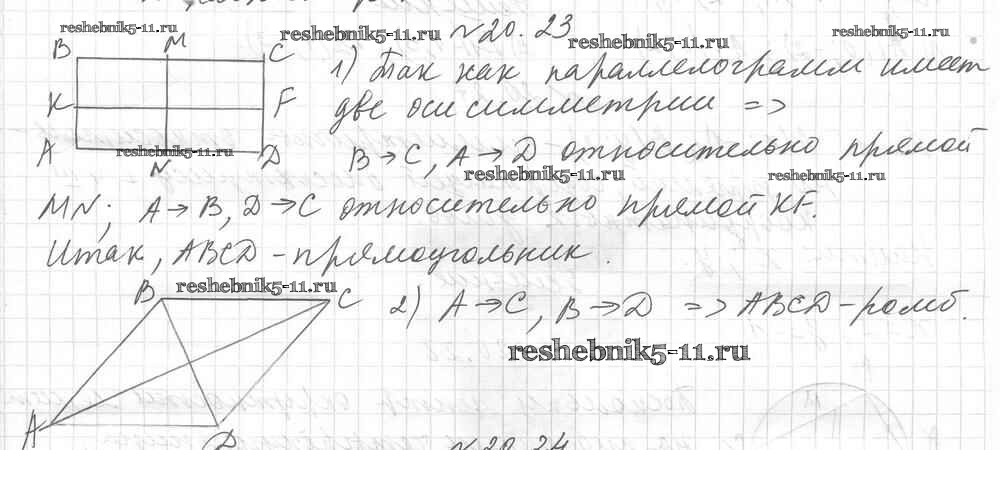 reshebnik5-11.ru
reshebnik5-11.ru
№20.23
reshebnik5-11.ru
reshebnik5-11.ru
B M C
1) Так как параллелограмм имеет
K F
две оси симметрии =>
A N D
reshebnik5-11.ru
B→C, A→D относительно прямой
reshebnik5-11.ru
reshebnik5-11.ru
MN; A→B, D→C относительно прямой KF.
Итак, ABCD - прямоугольник.
reshebnik5-11.ru
B C
2) A→C, B→D => ABCD - ромб.
reshebnik5-11.ru
A D
№20.24